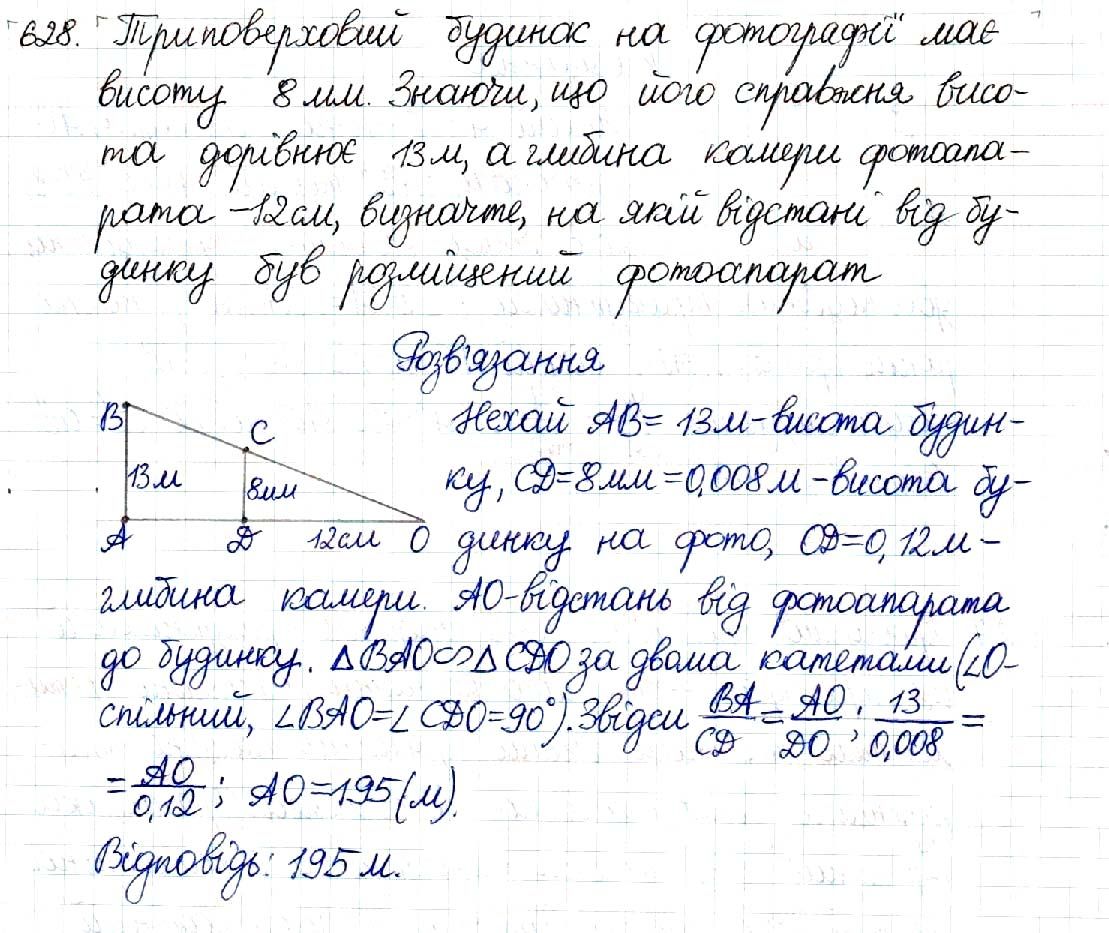 628. Триповерховий будинок на фотографії має
висоту 8 мм. Знаючи, що його справжня висо-
та дорівнює 13м, а глибина камери фотоапа-
рата -12см, визначте, на якій відстані від бу-
динку був розміщений фотоапарат
Розв'язання
B
C
13м
8мм
A
D
12см
O
Нехай AB= 13м-висота будин-
ку, CD=8мм=0,008м-висота бу-
динку на фото, OD=0,12м-
глибина камери. AO-відстань від фотоапарата
до будинку. ΔBAO∽ΔCDO за двома катетами (∠O-
спільний, ∠BAO=∠CDO=90°). Звідси BA/CD=AO/DO; 13/0,008=
=AO/0,12; AO=195(м).
Відповідь: 195м.